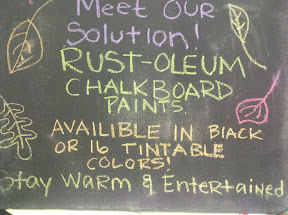 Meet Our
Solution!
RUST-OLEUM
CHALKBOARD
PAINTS
AVAILIBLE IN BLACK
OR 16 TINTABLE
COLORS!
Stay Warm & Entertained